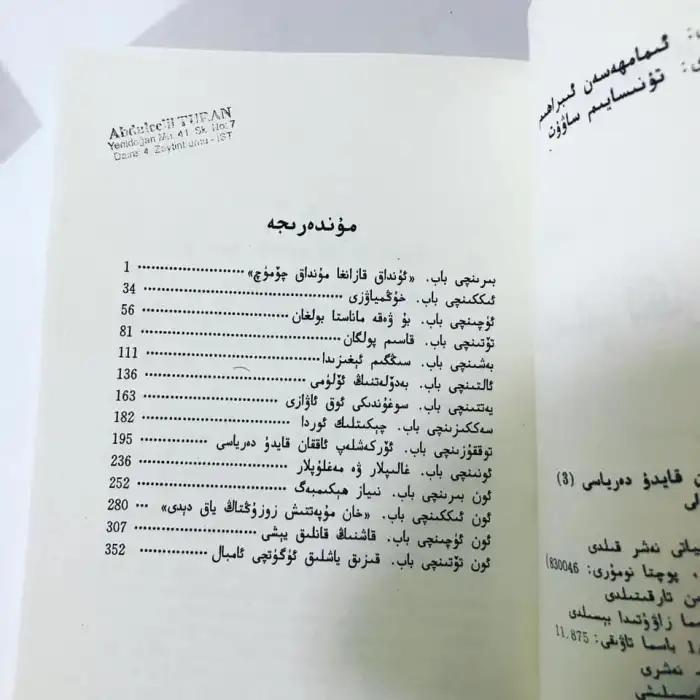 Abdulcelil TURAN
Yenidoğan Mh. 41. Sk. No: 7
Daire: 4 Zeytinburnu - İST
مۇندەرىجە
بىرىنچى باب. «ئۇنداق قازانغا مۇنداق چۆمۈچ» 1
ئىككىنچى باب. خۇڭمياۋزى 34
ئۈچىنچى باب. بۇ ۋەقە ماناستا بولغان 56
تۆتىنچى باب. قاسىم پولگان 81
بەشىنچى باب. سىڭگىم ئېغىزىدا 111
ئالتىنچى باب. بەدۆلەتنىڭ ئۆلۈمى 136
يەتتىنچى باب. سوغۇندىكى ئوق ئاۋازى 163
سەككىزىنچى باب. چېكىتلىك ئوردا 182
توققۇزىنچى باب. ئۆركەشلەپ ئاققان قايدۇ دەرياسى 195
ئونىنچى باب. غالىپلار ۋە مەغلۇپلار 236
ئون بىرىنچى باب. نىياز ھېكىمبەگ 252
ئون ئىككىنچى باب. «خان مۇپەتتىش زوزۇڭتاڭ ياق دېدى» 280
ئون ئۈچىنچى باب. قاشنىڭ قانلىق يېشى 307
ئون تۆتىنچى باب. قىزىق ياشلىق ئۇگۇتچى ئامبال 352
ئىمامھەسەن ئىبراھىم
تۇنىسايىم ساۋۇت
قايدۇ دەرياسى (3)
نەشر قىلدى
پوچتا نومۇرى: 830046)
تارقىتىلدى
زاۋۇتىدا بېسىلدى
باسما تاۋىقى: 11.875
نەشرى